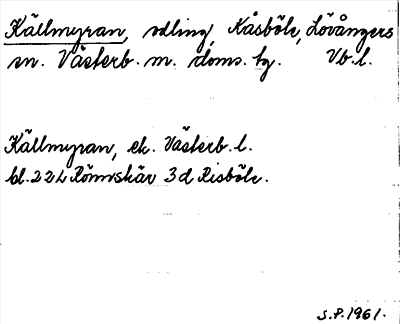 Källmyran, odling, Kåsböle, Lövångers
sn. Västerb. m. doms. tg. Vb. l.
Källmyran, ek. Västerb. l.
bl. 22 L Rönnskär 3 d Risböle.
S.P. 1961.